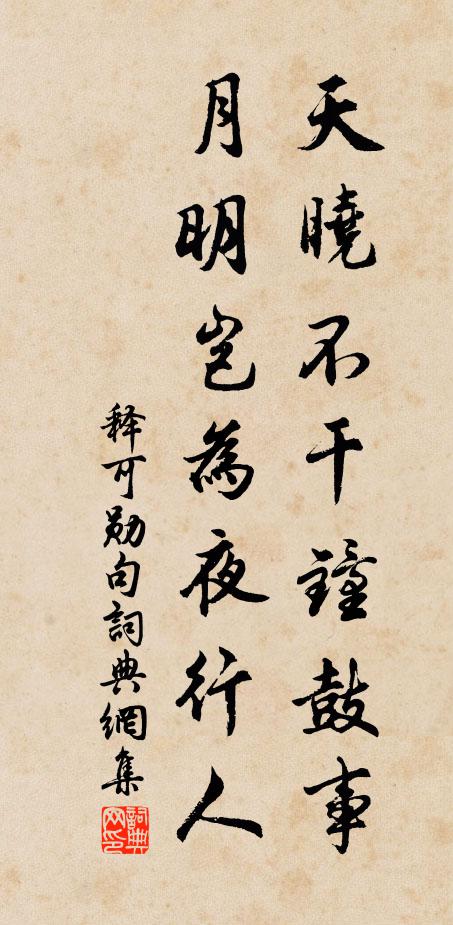 天曉不干鐘鼓事
月明豈為夜行人
释可勋句詞典網集
詞典网印